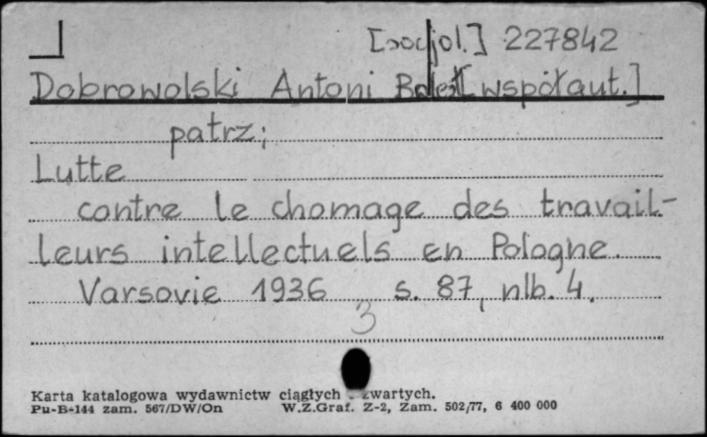 [socjol.] 227842
Dobrowolski Antoni Bolesł [współaut.]
patrz;
Lutte
contre le chomage des travail-
leurs intellectuels en Pologne.
Varsovie 1936 s. 87, nlb. 4.
3
Karta katalogowa wydawnictw ciągłych zwartych.
Pu-B-144 zam. 567/DW/On W.Z.Graf. Z-2, Zam. 502/77, 6 400 000